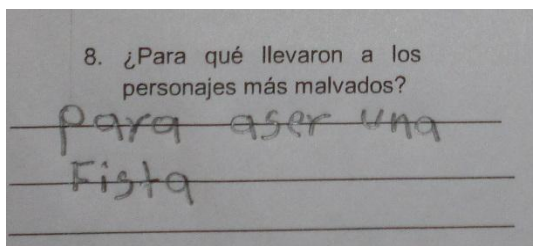 8. ¿Para qué llevaron a los
personajes más malvados?
para aser una
Fista